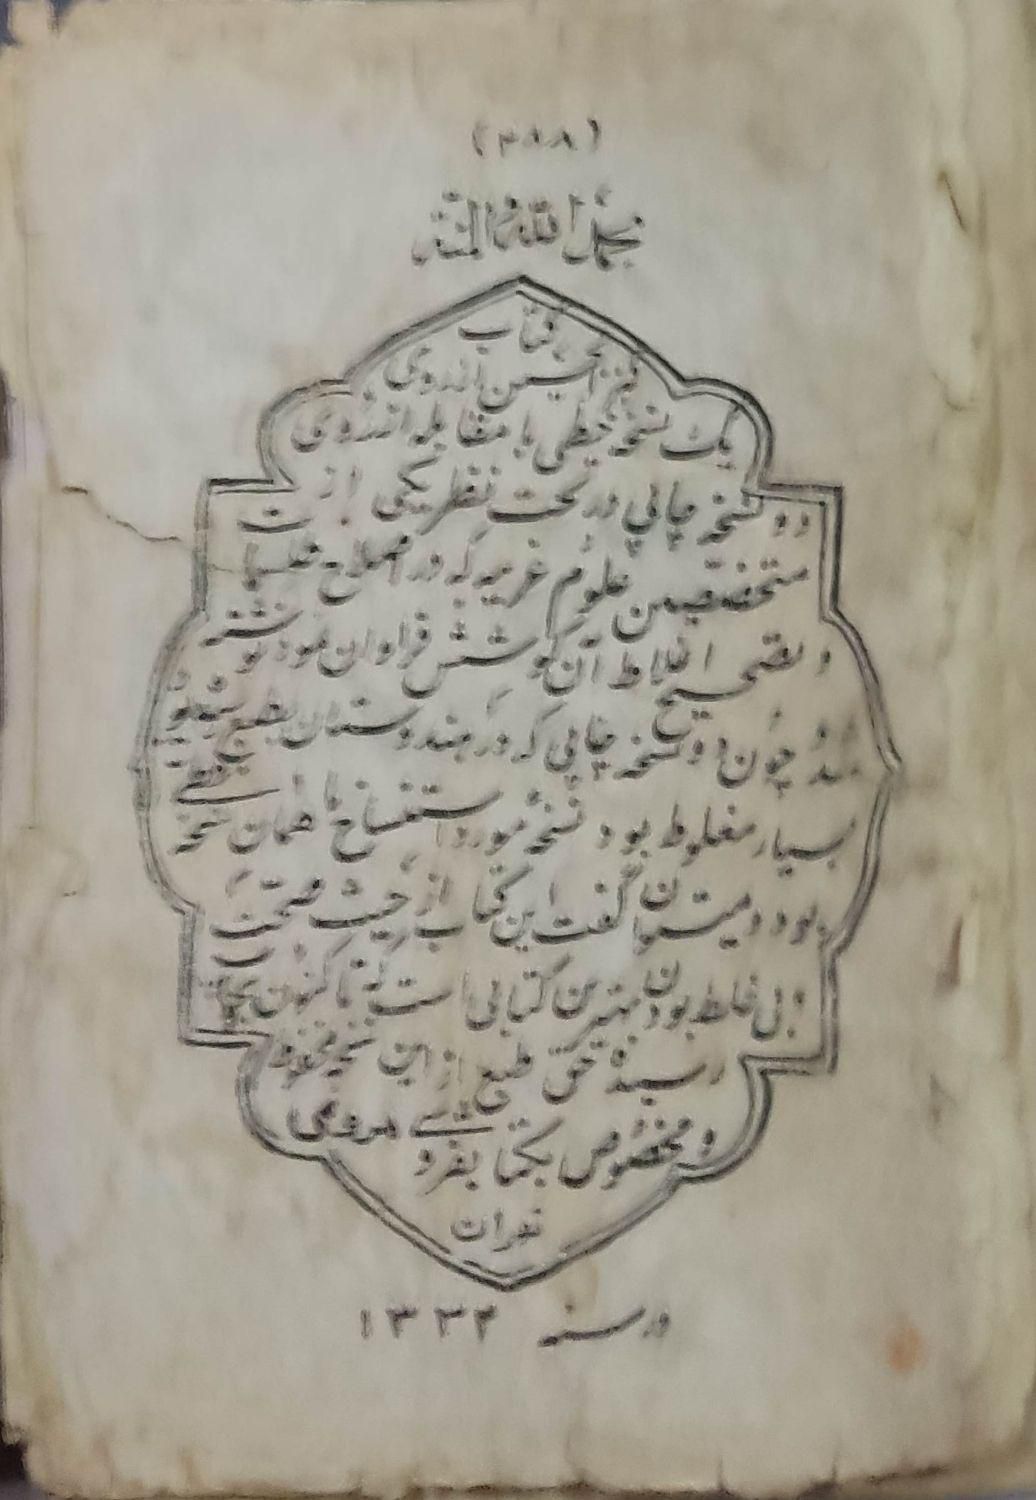 بحمد الله والمنه
کتاب
کنز الحسین از روی
یک نسخه خطی با مقابله از روی
دو نسخه چاپی در تحت نظر یکی از
متخصصین علوم غریبه که در اصلاح
و تصحیح اغلاط آن کوشش فراوان نمود
شد چون دو نسخه چاپی که در هندوستان بطبع
بسیار مغلوط بود نسخه مورد استنساخ ما همان نسخه خطی
بود و میتوان گفت این کتاب از حیث صحت
و بی غلط بودن بهترین کتابی است که تاکنون بچاپ
رسیده حق طبع از این نسخه محفوظ
و مخصوص بکتابفروشی مروی
طهران
در سنه ۱۳۳۲